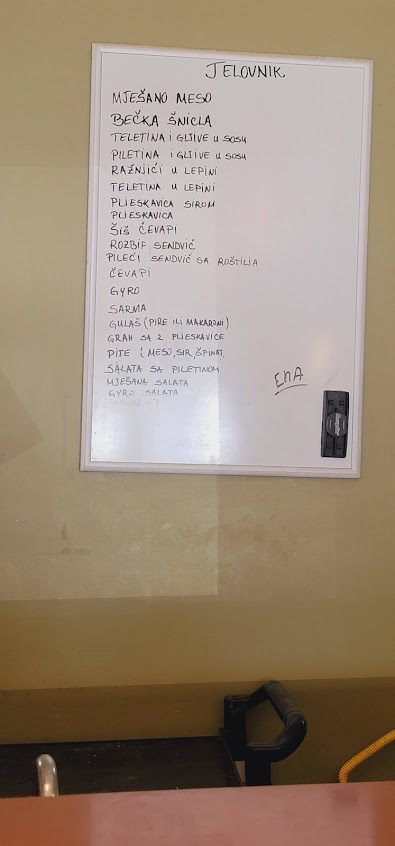 JELOVNIK
MJEŠANO MESO
BEČKA ŠNICLA
TELETINA I GLJIVE U SOSU
PILETINA I GLJIVE U SOSU
RAŽNJIĆI U LEPINI
TELETINA U LEPINI
PLJESKAVICA SIROM
PLJESKAVICA
ŠIŠ ĆEVAPI
ROZBIF SENDVIĆ
PILEĆI SENDVIĆ SA ROŠTILJA
ĆEVAPI
GYRO
SARMA
GULAŠ (PIRE ILI MAKARONI)
GRAH SA 2 PLJESKAVICE
PITE (MESO, SIR, ŠPINAT,
SALATA SA PILETINOM
MJEŠANA SALATA
GYRO SALATA
ENA